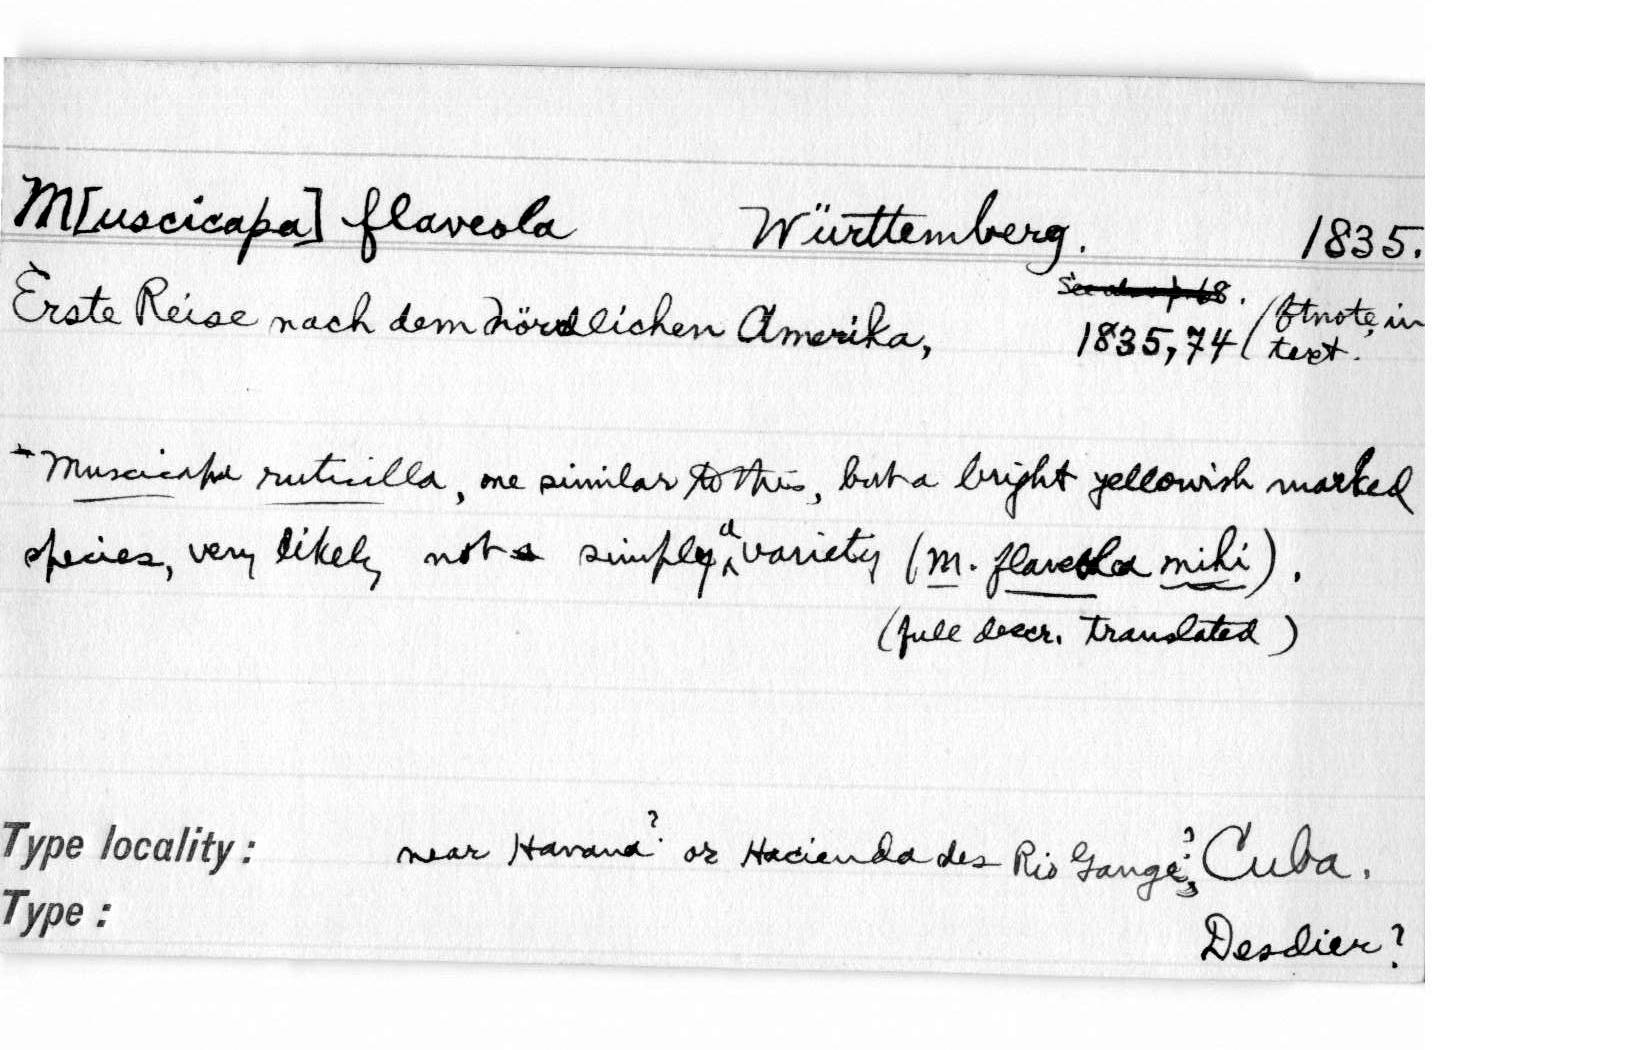 M[uscicapa] flaveola Württemberg. 1835.
Erste Reise nach dem nördlichen Amerika, 1835, 74 (ftnote, in text.
See also p. 68.
*Muscicapa ruticilla, one similar to this, but a bright yellowish marked
species, very likely not simply a variety (M. flaveola mihi).
(full descr. translated)
Type locality: near Havana? or Hacienda des Rio Gange?, Cuba.
Type:
Desdier?